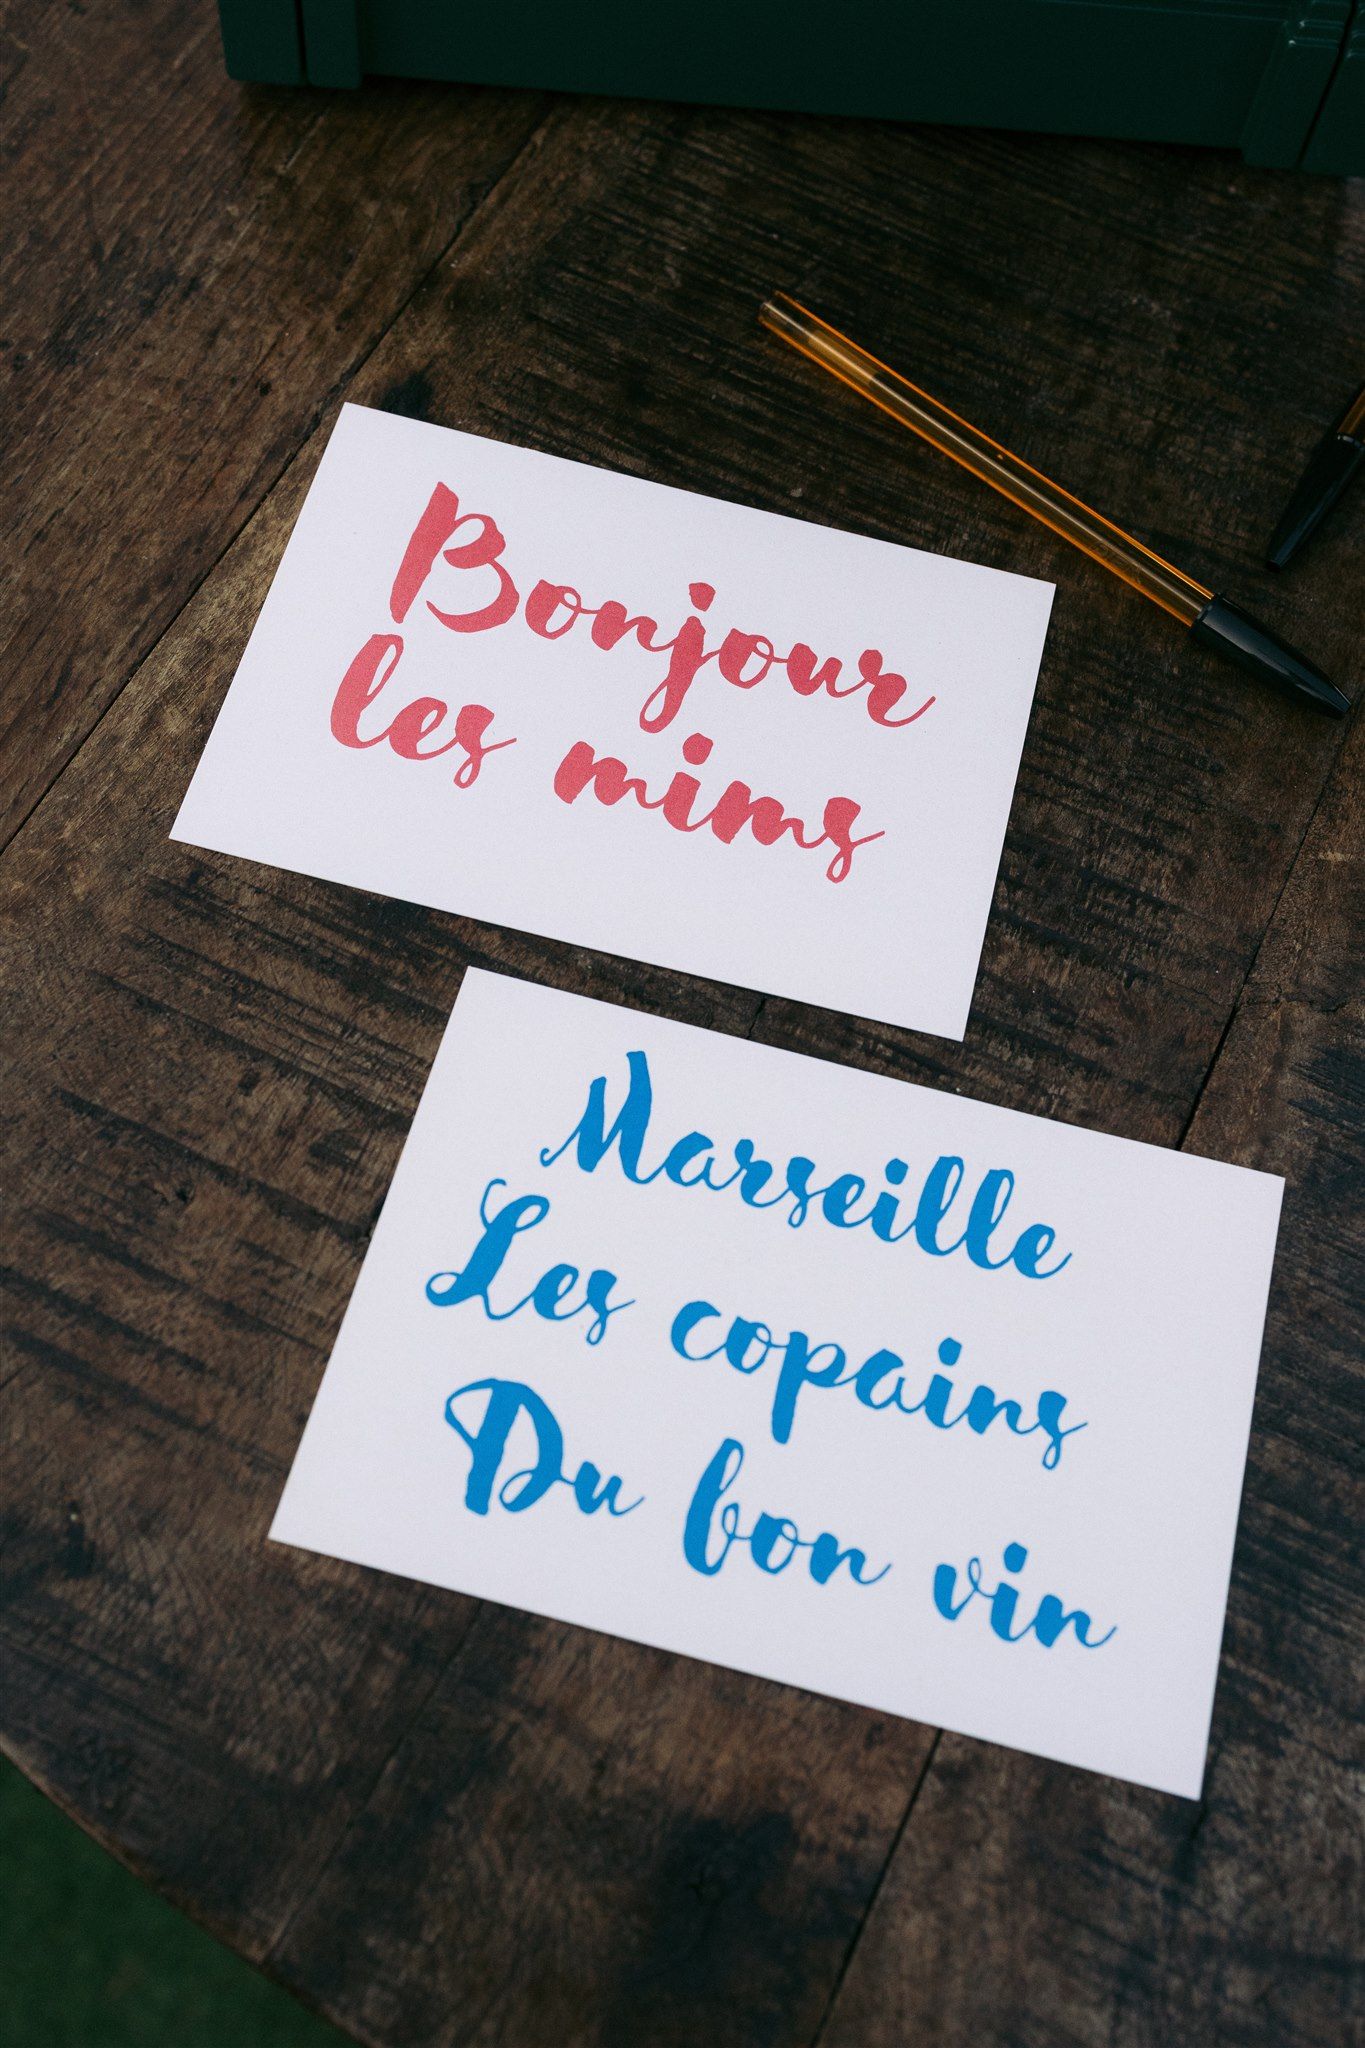 Bonjour
les mims
Marseille
Les copains
Du bon vin